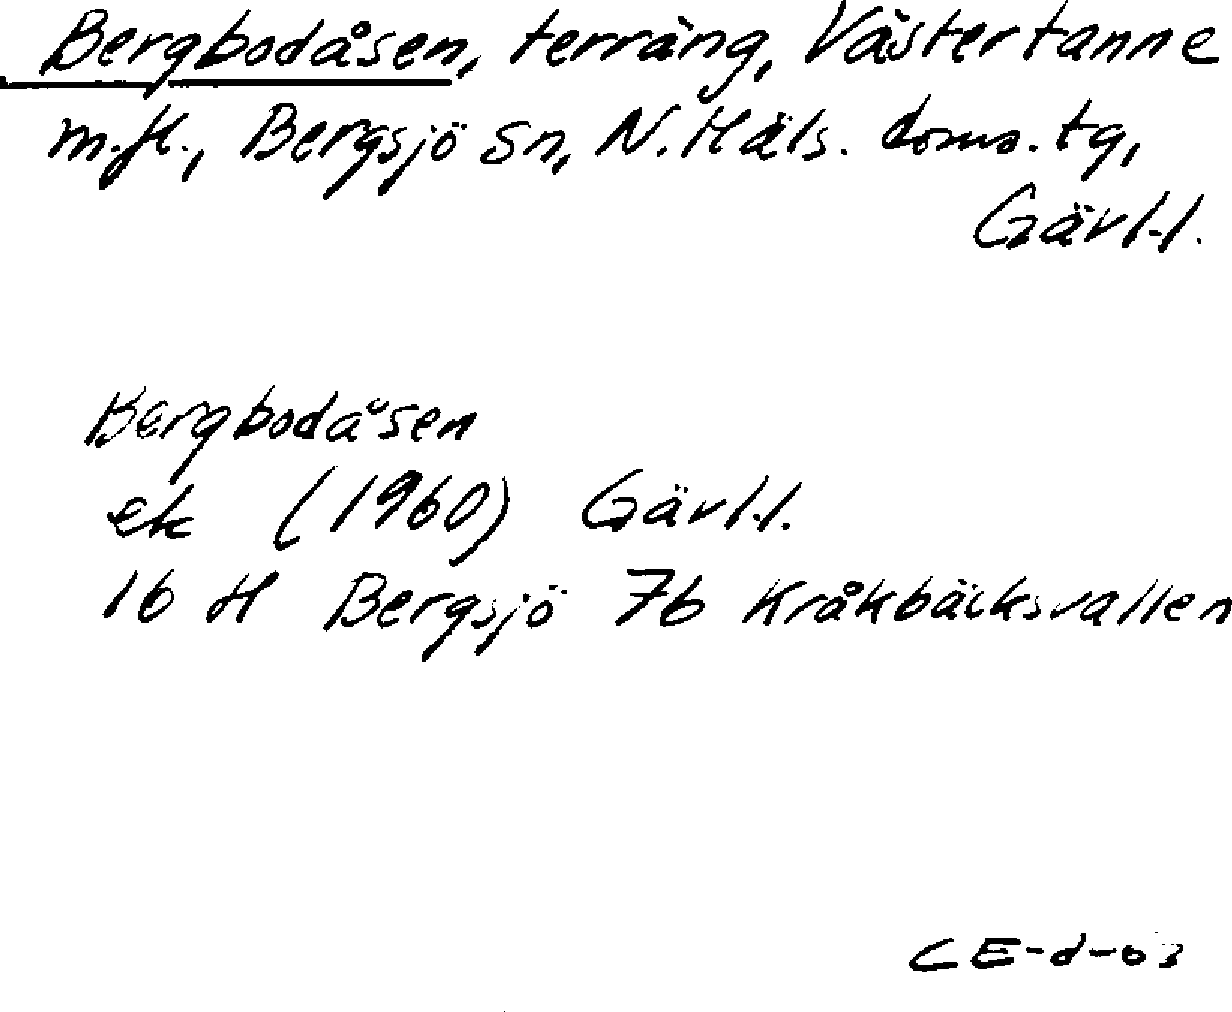 Bergbodåsen, terräng, Västertanne
m.fl., Bergsjö sn, N. Häls. doms. tg,
Gävl.l.
Bergbodåsen
ek (1960) Gävl.l.
16 H Bergsjö 7b Kråkbäcksvallen
CE-d-03